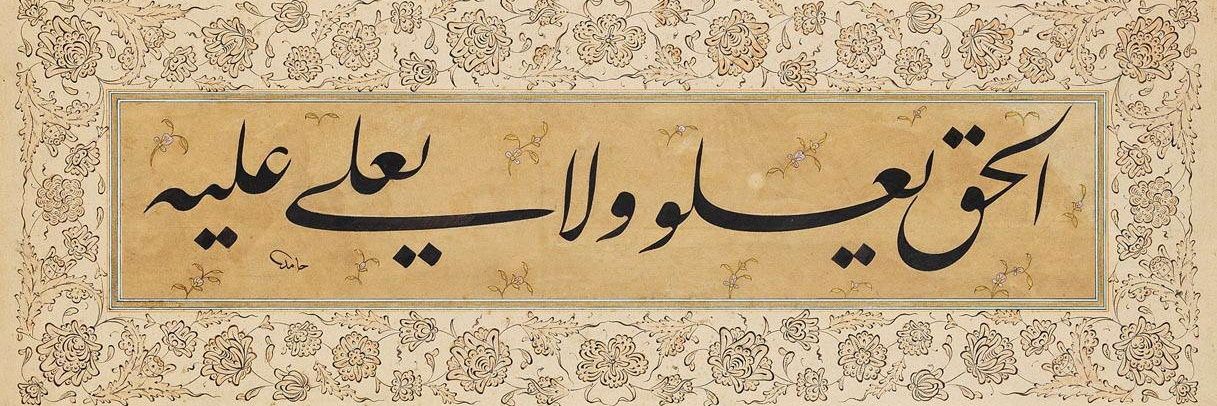 الحق يعلو ولا يعلى عليه
حامد